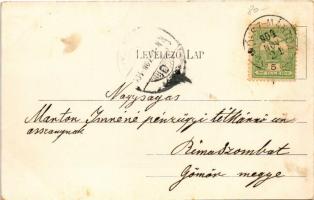 LEVELEZŐ LAP
Nagyságos
Marton Imréné pénzügyi
asszonynak
Rimaszombat
Gömör megye
5